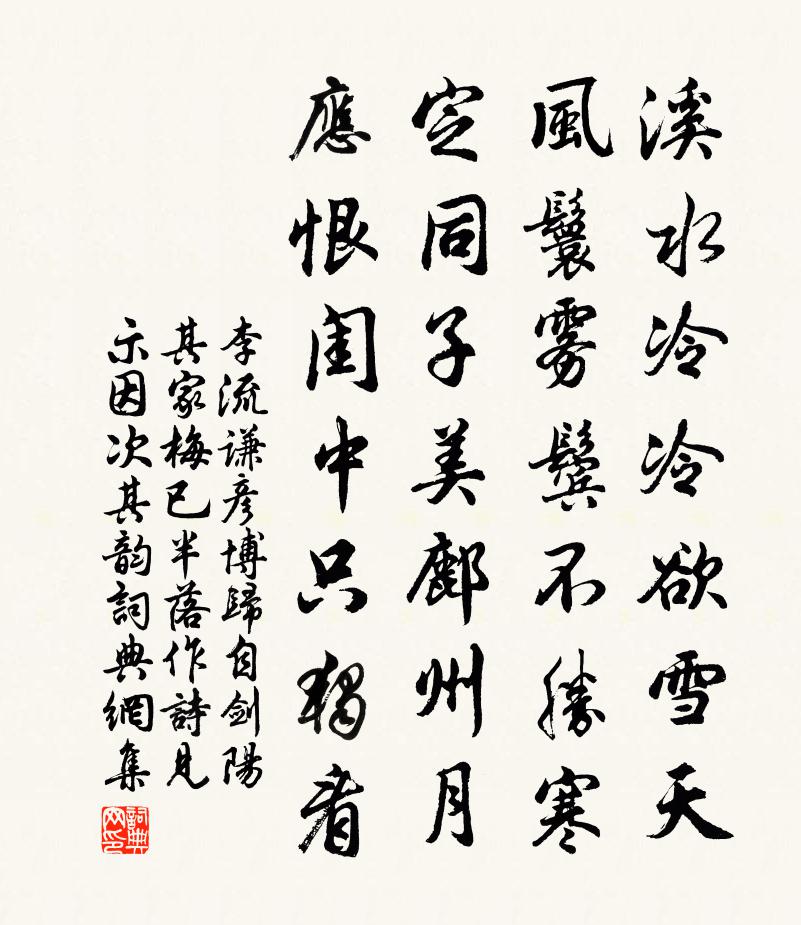 溪水冷冷欲雪天
風鬟雾鬢不勝寒
定同子美鄜州月
應恨閨中只獨看
李流谦彦博歸自劍陽
其家梅已半落作詩見
示因次其韵詞典網集
詞典
网印